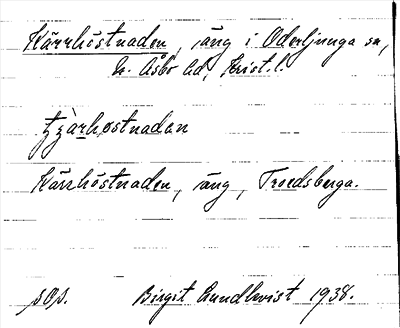 Kärrhöstnaden, äng i Oderljunga sn,
N. Åsbo hd, Krist. l.
Kärrhöstnaden, äng, Troedsberga.
sOp. Birgit Lundkvist 1938.